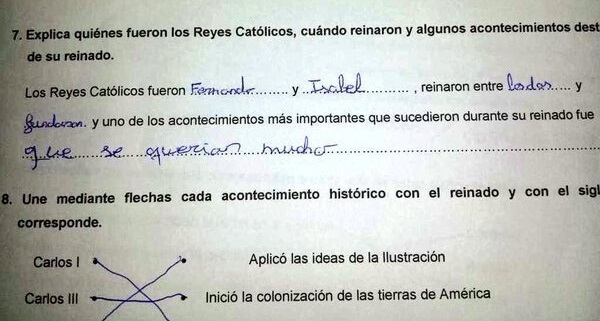 7. Explica quiénes fueron los Reyes Católicos, cuándo reinaron y algunos acontecimientos dest
de su reinado.
Los Reyes Católicos fueron Fernando......... y ..Isabel..........., reinaron entre los dos..... y
fundaron. y uno de los acontecimientos más importantes que sucedieron durante su reinado fue
que se querian mucho
8. Une mediante flechas cada acontecimiento histórico con el reinado y con el sigl
corresponde.
Carlos I Aplicó las ideas de la Ilustración
Carlos III Inició la colonización de las tierras de América